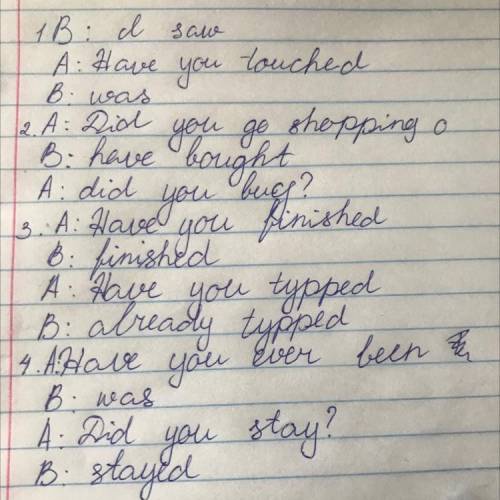 1 B: I saw
A: Have you touched
B: was
2. A: Did you go shopping
B: have bought
A: did you buy?
3. A: Have you finished
B: finished
A: Have you typped
B: already typped
4. A: Have you ever been
B: was
A: Did you stay?
B: stayed